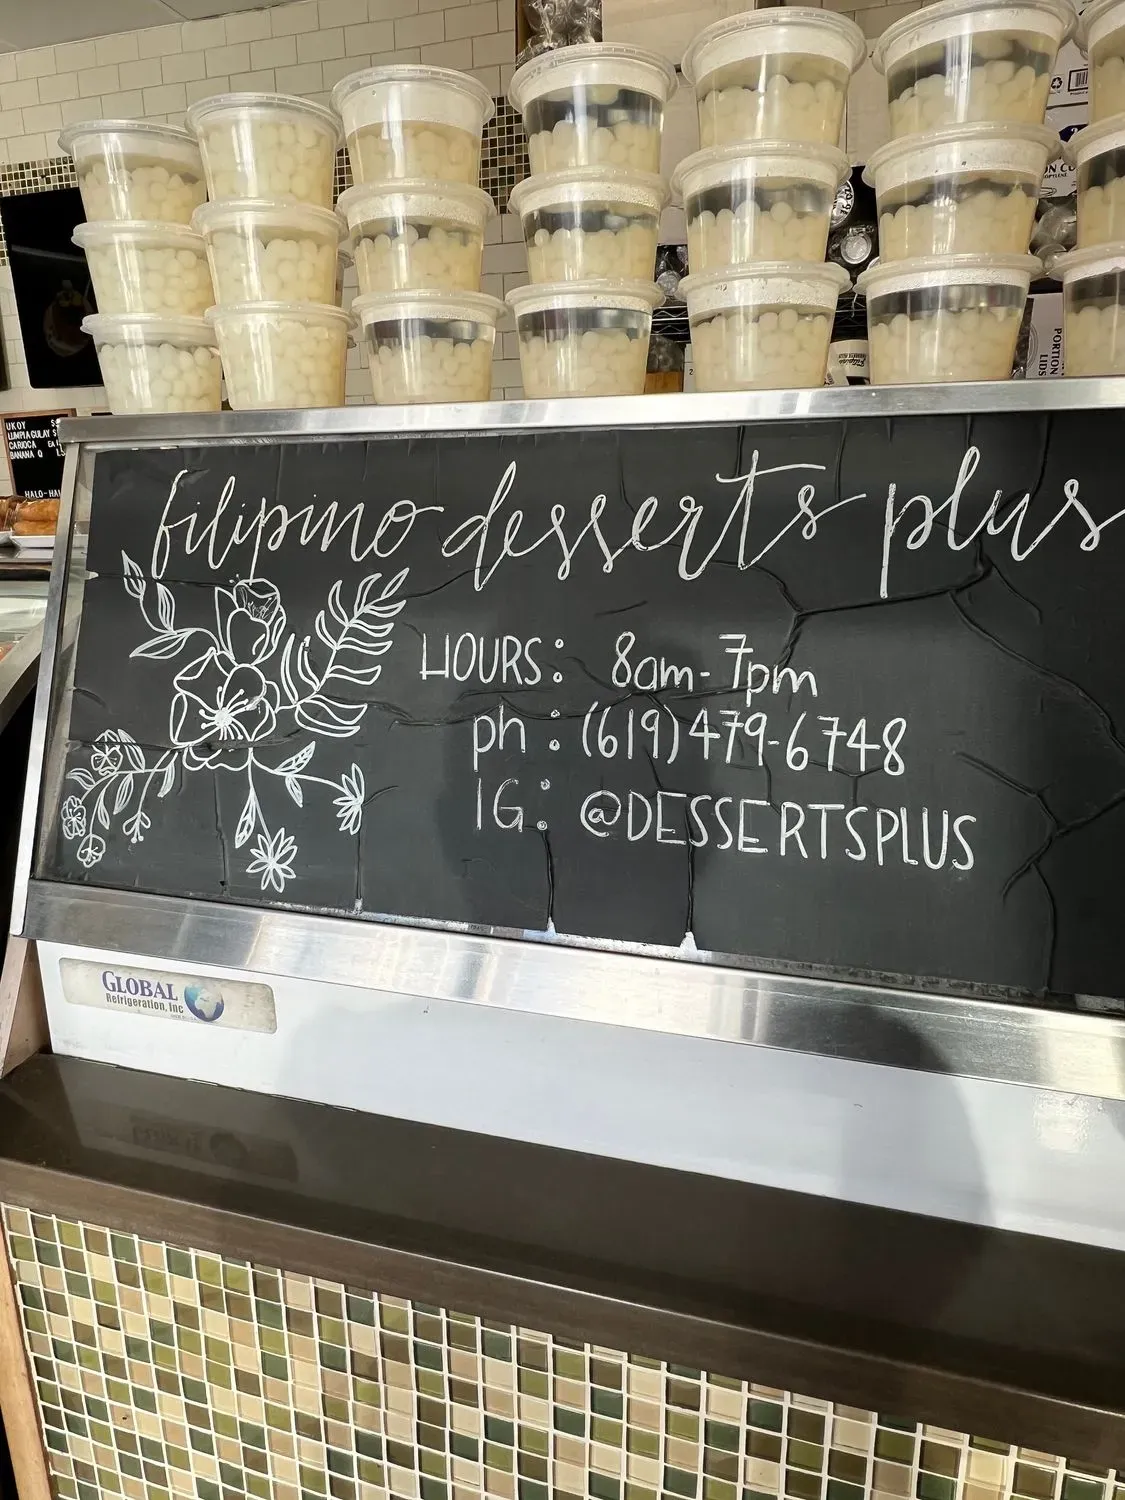 UKOY
LUMPIA GULAY
CARIOCA EA
BANANA Q
HALO-HA
PORTION
LIDS
filipino desserts plus
HOURS: 8am-7pm
ph: (619)479-6748
IG: @DESSERTSPLUS
GLOBAL
Refrigeration, Inc